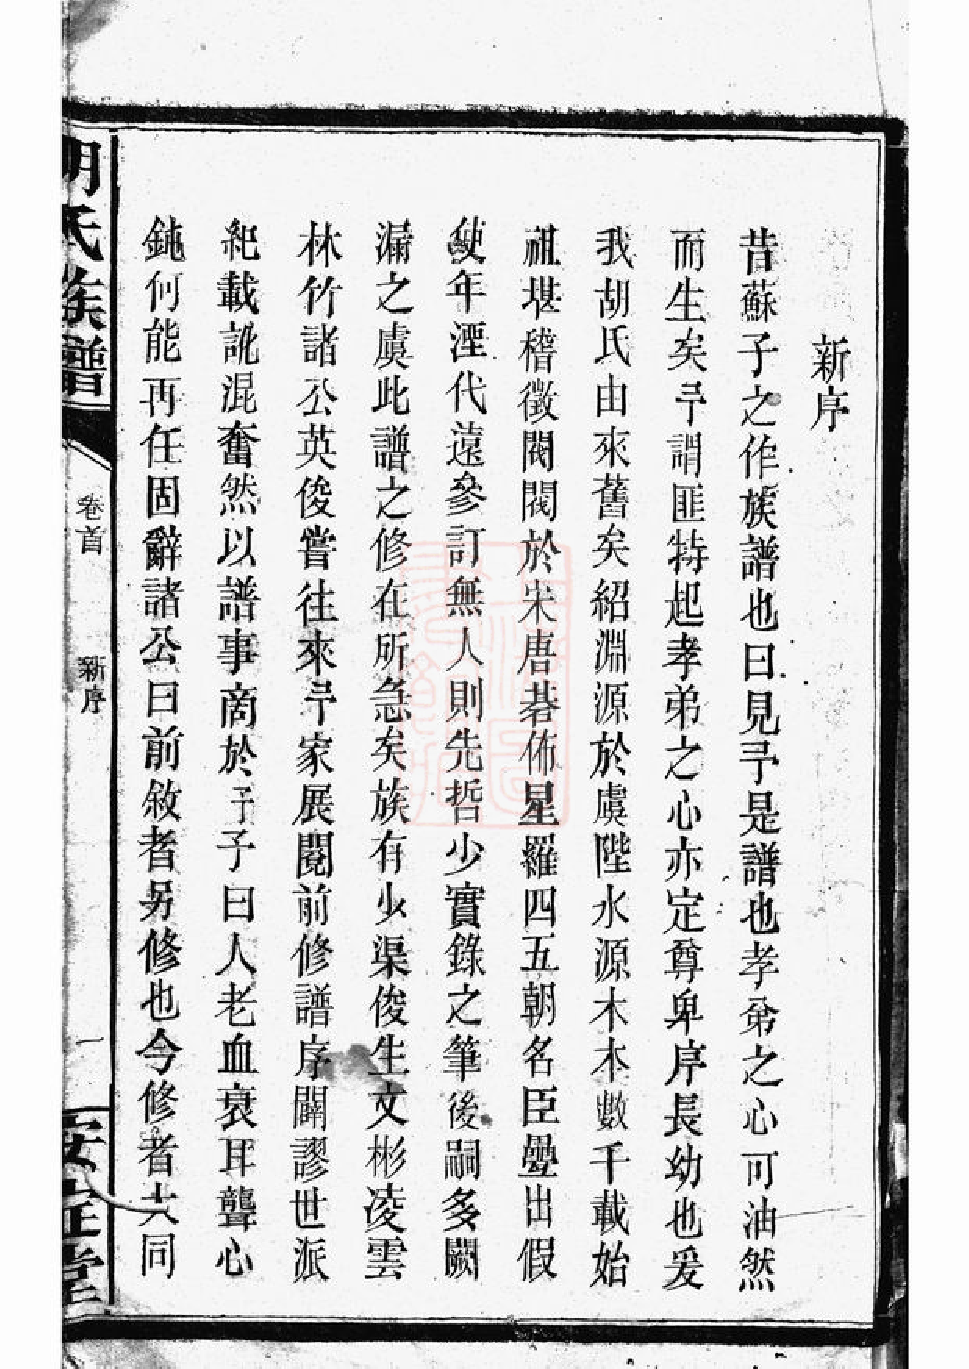 新序
昔蘇子之作族譜也曰見予是譜也孝弟之心可油然
而生矣予謂匪特起孝弟之心亦定尊卑序長幼也爰
我胡氏由來舊矣紹淵源於虞陛水源木本數千載始
祖堪稽徵閥閱於宋唐碁佈星羅四五朝名臣疊出假
使年湮代遠參訂無人則先哲少實錄之筆後嗣多闕
漏之虞此譜之修在所急矣族有少渠俊生文彬凌雲
林竹諸公英俊嘗往來予家展閱前修譜序闢謬世派
紀載訛混奮然以譜事商於予予曰人老血衰耳聾心
鈍何能再任固辭諸公曰前敘者另修也今修者大同
胡氏族譜
卷首
新序
一
安定堂